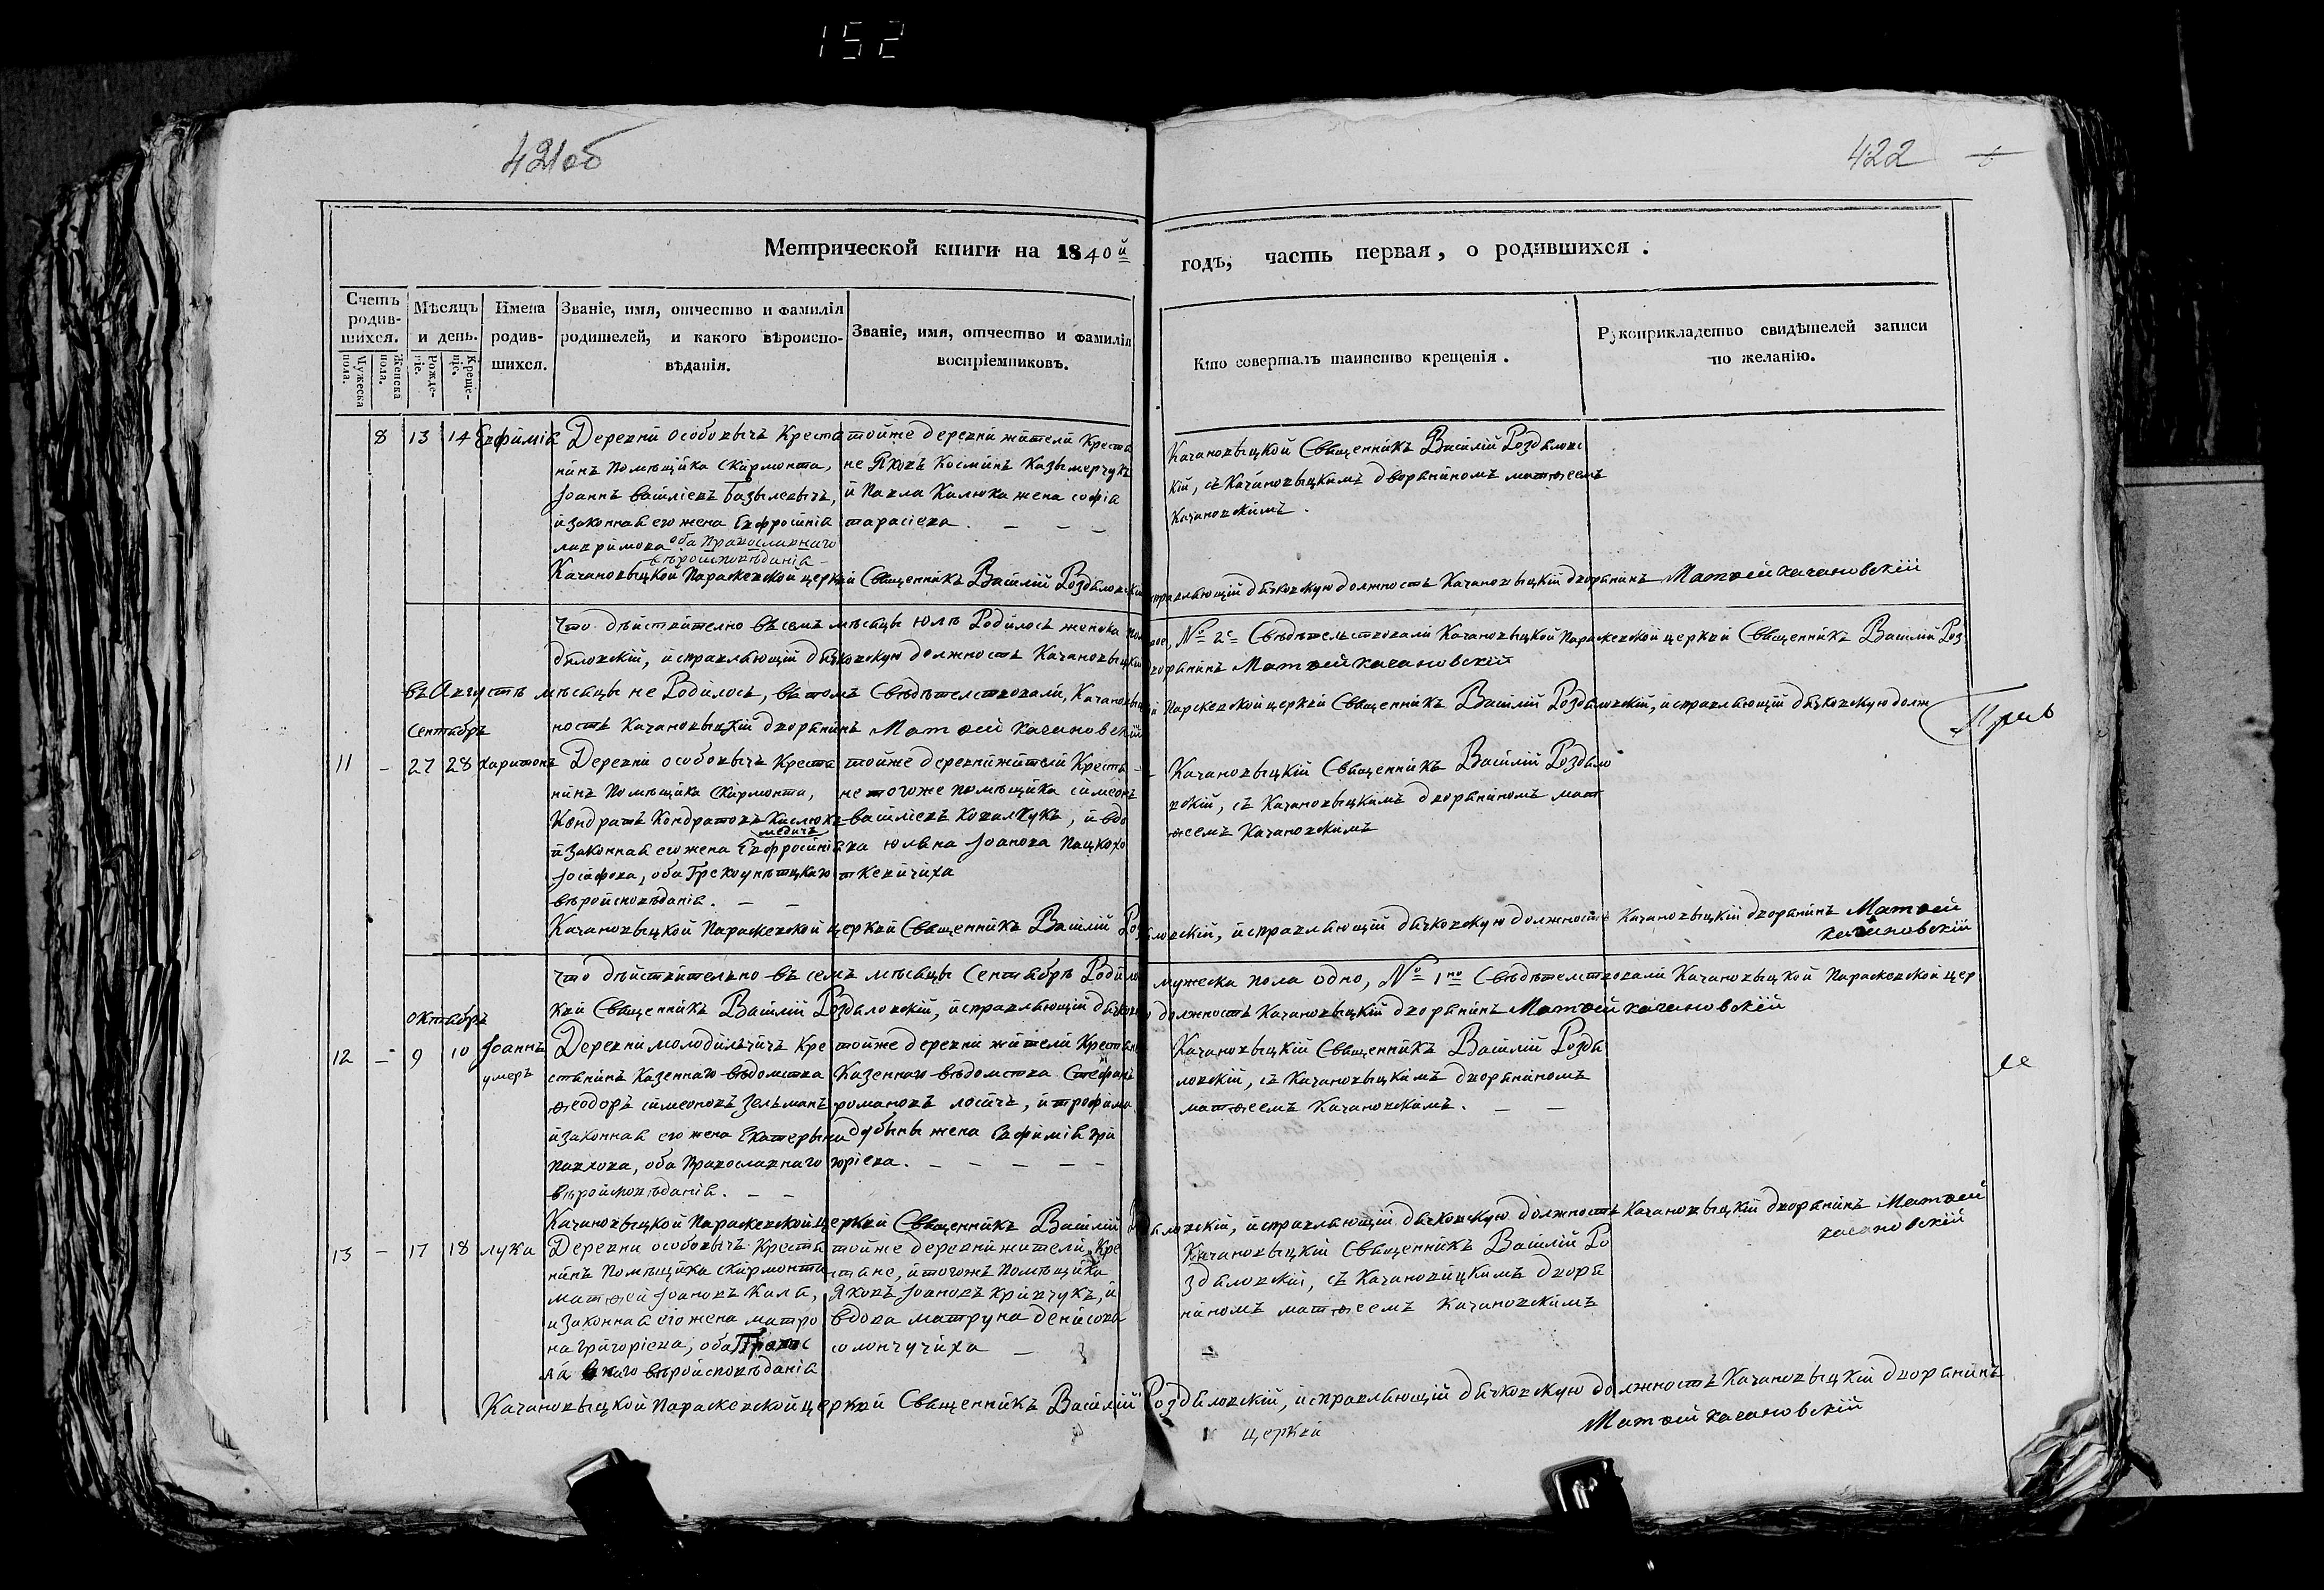 152
421об
422
Метрической книги на 1840й
годъ, часть первая, о родившихся.
Счетъ родив-шихся.
Мужеска пола.
Женска пола.
Мѣсяцъ и день.
Рожде-нія.
Креще-нія.
Имена родив-шихся.
Званіе, имя, отчество и фамилія родителей, и какого вѣроиспо-вѣданія.
Званіе, имя, отчество и фамилія воспріемниковъ.
Кто совершалъ таинство крещенія.
Рукоприкладство свидѣтелей записи по желанію.
8 13 14 Евфимія
Деревни Особовычъ Крестя
нинъ помѣщика Скирмонта,
Іоаннъ Василіевъ Базылевичъ,
и законная его жена Евфросинія
лаврѣмова оба православнаго
вѣроисповѣданія
тойже деревни жители Крестя
не Яковъ Косминъ Казымерчукъ
и Павла Калюха жена софія
тарасіева. — — —
Качановыцкой Священникъ Василій Роздяловс
кій, съ Качановыцкимъ дворяниномъ матѳеемъ
Качановскимъ.
Качановыцкой Параскевской церкви Священникъ Василій Роздяловскій
исправляющій дячковскую должность Качановыцкій дворянинъ Матѳей Качановскій
Что дѣйствително въ семъ мѣсяцы юлѣ Родилось женска пол
ое, № 2е Свѣдѣтельствовали Качановыцкой Параскевской церкви Священникъ Василій Роз
дяловскій, исправляющій дячковскую должность Качановыцкій
дворянинъ Матѳей Качановскій
въ Августѣ мѣсяцы не Родилось, вътомъ Свѣдѣтелствовали, Качановыцкой
Парскевской церкви Священникъ Василій Роздяловскій, исправляющій дячковскую долж
ность Качановыцкій дворянинъ Матѳей Качановскій
Сентябрь
11 — 27 28 харитонъ
Деревни особовычъ Крестя
нинъ помѣщика Скирмонта,
Кондратъ Кондратовъ Кислюкъ
и законная его жена Евфросинія
Іосафова, оба Грекоунѣтцкаго
вѣроисповѣданія. — —
тойже деревни жители Крестя
не тогоже помѣщика симеонъ
василіевъ Ковалчукъ, и вдо
ва юляна Іоанова Пацково
ткевичиха
Качановыцкій Священникъ Василій Роздяло
вскій, съ Качановыцкимъ дворяниномъ мат
ѳеемъ Качановскимъ
Качановыцкой Параскевской церкви Священникъ Василій Роздяловскій, исправляющій дячковскую должность Качановыцкій дворянинъ Матѳей
Качановскій
Что дѣйствително въ семъ мѣсяцы Сентябрѣ Родило
мужеска пола одно, № 1но Свѣдѣтелствовали Качановыцкой Параскевской цер
кви Священникъ Василій Роздяловскій, исправляющій дячковскую
должность Качановыцкій дворянинъ Матѳей Качановскій
октябрь
12 — 9 10 Іоаннъ
умеръ
Деревни молодильчичъ Кре
стянинъ Казеннаго вѣдомства
Ѳеодоръ симеоновъ Зельманъ
и законная его жена Екатерына
павлова, оба православнаго
вѣроисповѣданія. — —
тойже деревни жители Крестяне
Казеннаго вѣдомства Стефанъ
романовъ лосичъ, и трофима
дубыны жена Евфимія гри
горіева. — — — — —
Качановыцкій Священникъ Василій Роздя
ловскій, съ Качановыцкимъ дворяниномъ
матѳеемъ Качановскимъ. — —
Качановыцкой Параскевской церкви Священникъ Василій Роздяловскій, исправляющій дячковскую должность Качановыцкій дворянинъ Матѳей
Качановскій
13 — 17 18 лука
Деревни особовычъ Крестя
нинъ помѣщика Скирмонта
матѳей Іоановъ Кала,
и законная его жена матро
на григоріева, оба Правос
лавнаго вѣроисповѣданія
тойже деревни жители Кре
стяне, итогожъ помѣщика
Яковъ Іоановъ Кривчукъ, и
вдова матруна денисова
солончучиха —
Качановыцкій Священникъ Василій Ро
здяловскій, съ Качановицкимъ дворя
ниномъ матѳеемъ Качановскимъ
Качановыцкой Параскевской церкви Священникъ Василій Роздяловскій, исправляющій дячковскую должность Качановыцкій дворянинъ
Матѳей Качановскій
церкви